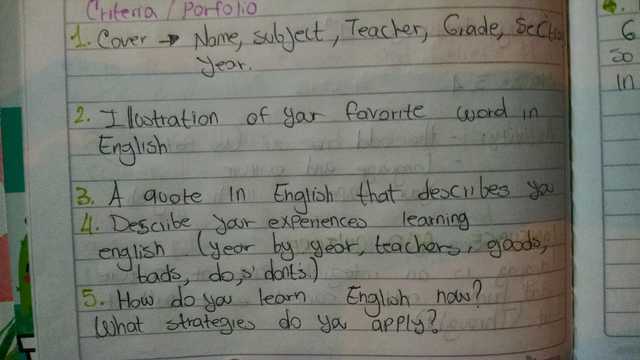 Criteria / Porfolio
1. Cover → Name, subject, Teacher, Grade, Section
year.
2. Illustration of your favorite word in
English
3. A quote in English that describes you
4. Describe your experiences learning
english (year by year, teachers, goods,
bads, do,s' donts.)
5. How do you learn English now?
What strategies do you apply?